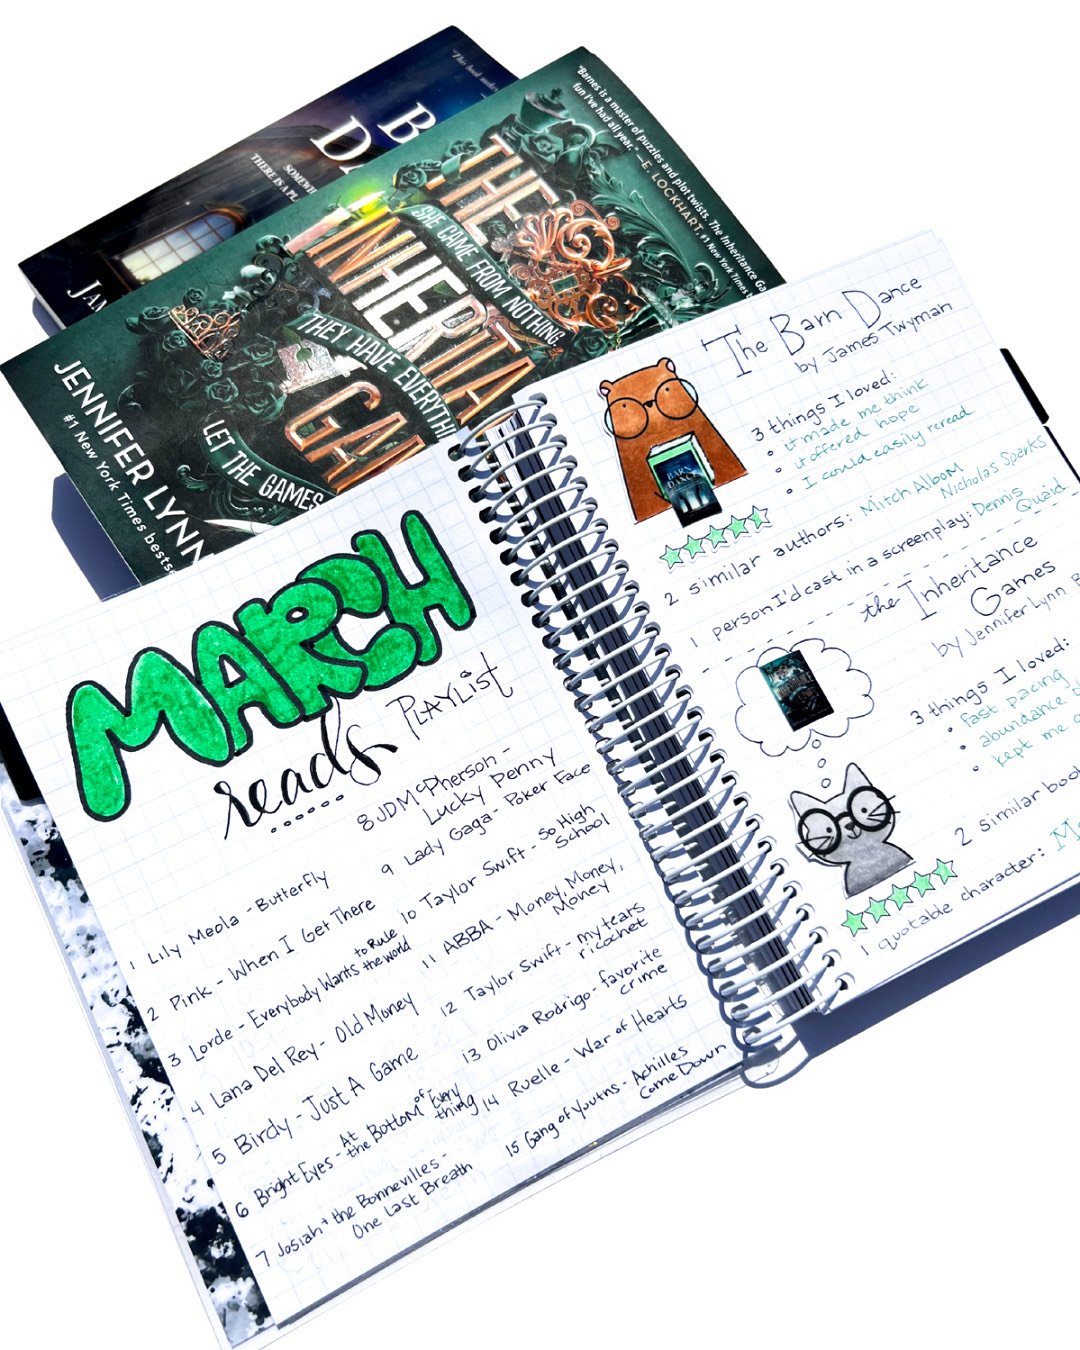 "This book
B
D
SOMEW
THERE IS A PL
JA
"Barnes is a master of puzzles and plot twists. The Inheritance Ga
fun I've had all year." —E. LOCKHART, #1 New York Times
THE
INHERITA
GA
SHE CAME FROM NOTHING.
THEY HAVE EVERYTHIN
LET THE GAMES
JENNIFER LYNN
#1 New York Times bestse
MARCH
reads PLAYLIST
1 Lily Meola - Butterfly
2 Pink - When I Get There
3 Lorde - Everybody Wants to Rule
the world
4 Lana Del Rey - Old Money
5 Birdy - Just A Game
6 Bright Eyes - At
the Bottom of Every
thing
7 Josiah + the Bonnevilles -
One Last Breath
8 JD McPherson -
Lucky Penny
9 Lady Gaga - Poker Face
10 Taylor Swift - So High
School
11 ABBA - Money, Money,
Money
12 Taylor Swift - my tears
ricochet
13 Olivia Rodrigo - favorite
crime
14 Ruelle - War of Hearts
15 Gang of Youths - Achilles
Come Down
The Barn Dance
by James Twyman
3 things I loved:
• it made me think
• it offered hope
• I could easily reread
BARN
DANCE
2 similar authors: Mitch Albom
Nicholas Sparks
1 person I'd cast in a screenplay: Dennis
Quaid
the Inheritance
Games
by Jennifer Lynn B
3 things I loved:
• fast pacing
• abundance
• kept me
2 similar boo
1 quotable character: